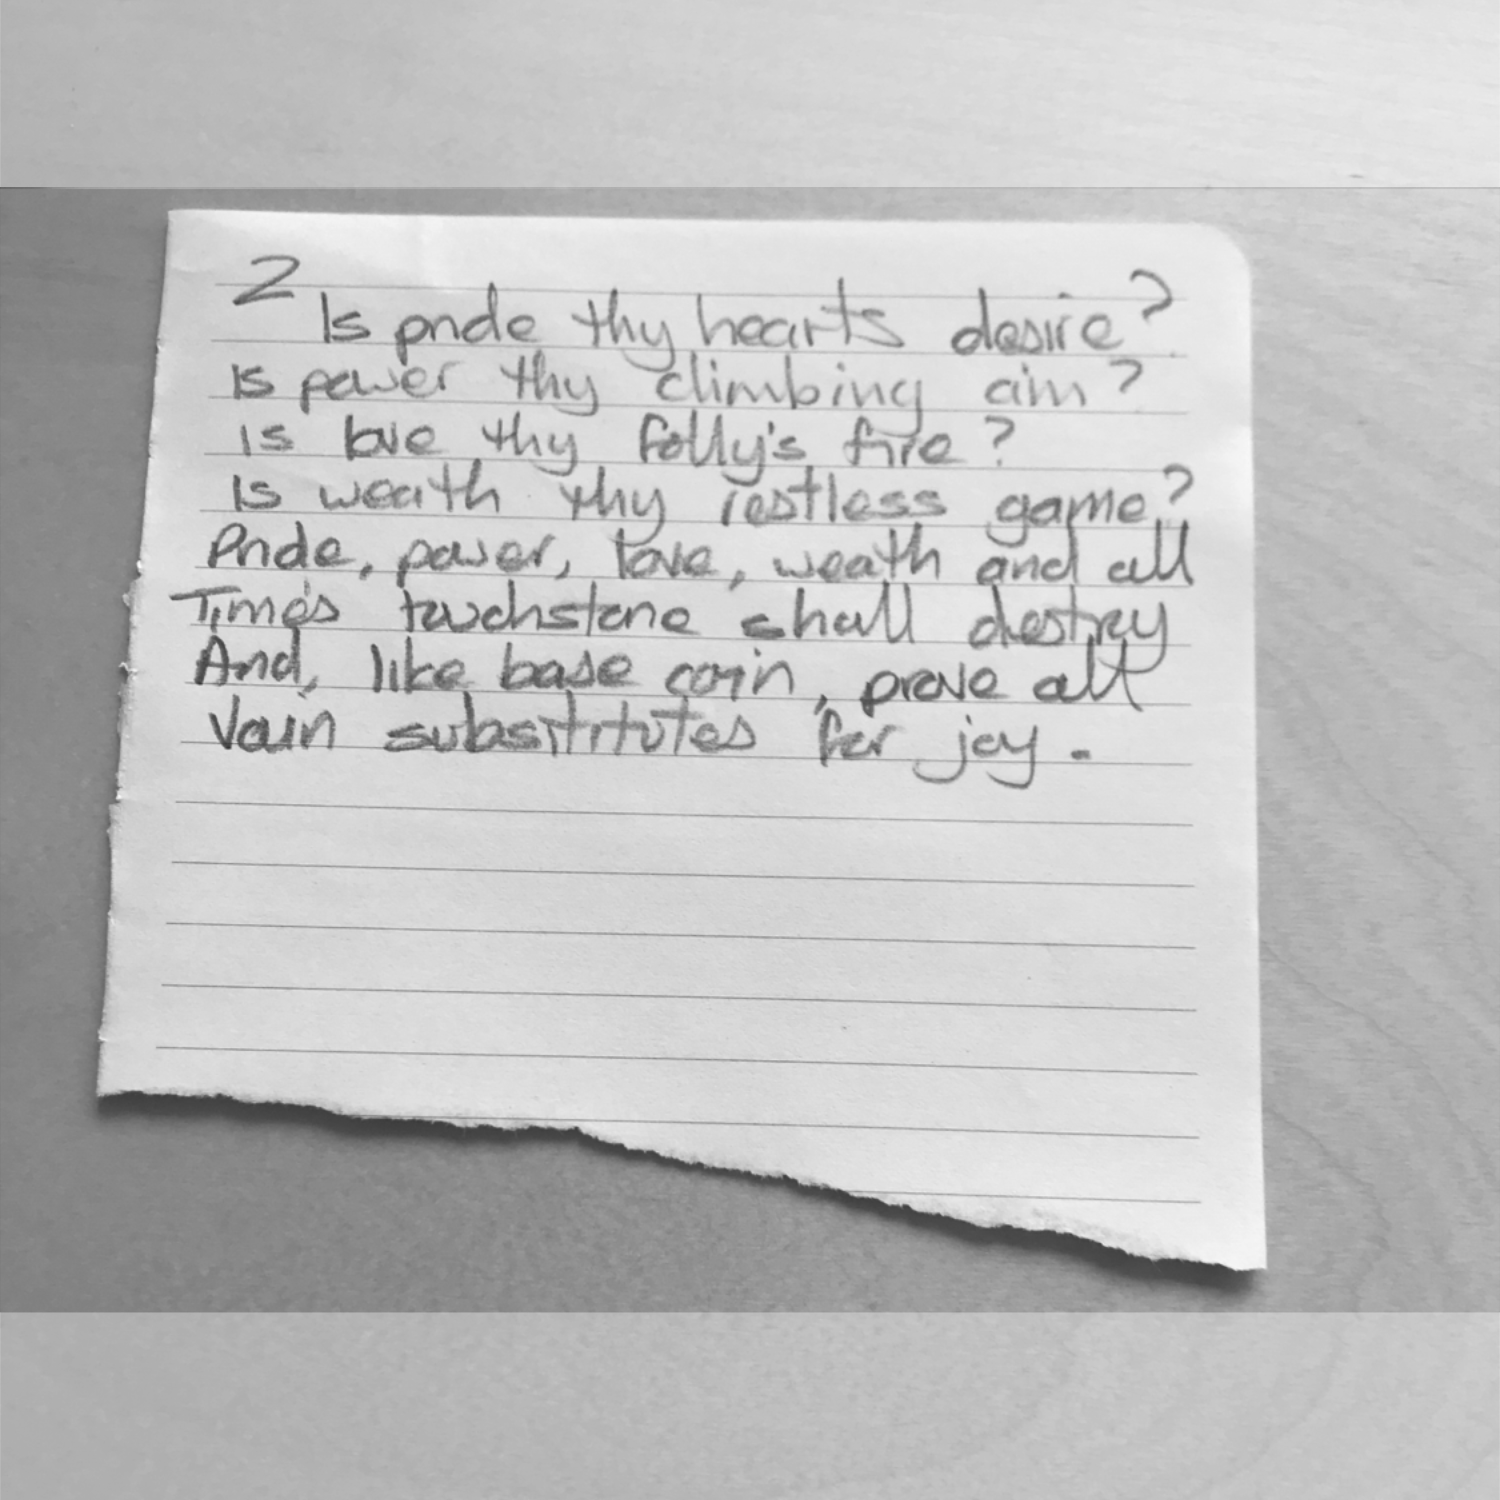 2
Is pride thy hearts desire?
Is power thy climbing aim?
is love thy folly's fire?
Is weath thy restless game?
Pride, power, love, weath and all
Time's touchstone shall destroy
And, like base coin, prove all
Vain subsititutes for joy.